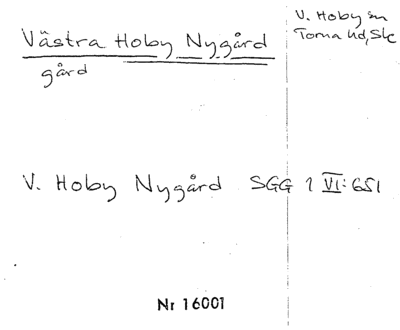 Västra Hoby Nygård
gård
V. Hoby sn
Torna hd, Sk
V. Hoby Nygård SGG 1 VI: 651
Nr 16001